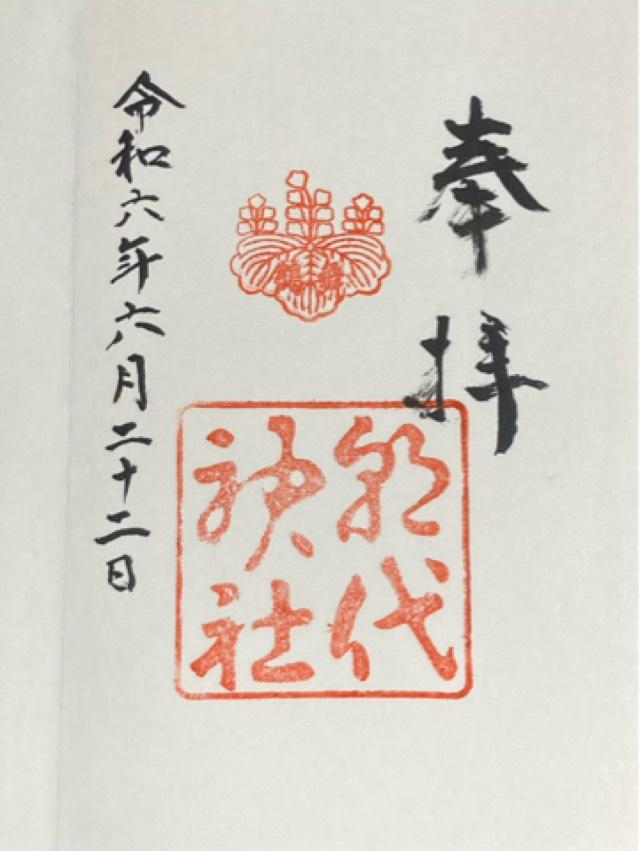 奉拝
朝代
神社
令和六年六月二十二日